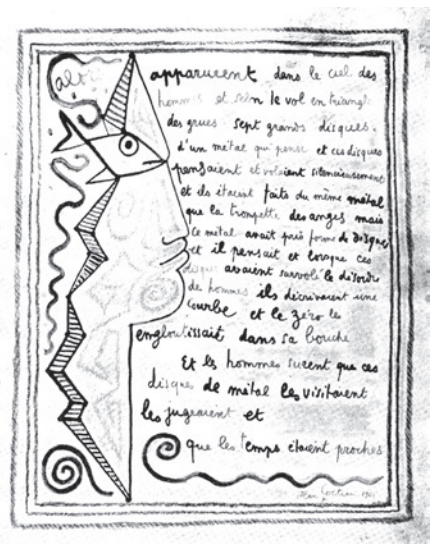 alors
apparurent dans le ciel des
hommes et selon le vol en triangle
des grues sept grands disques
d'un métal qui pense et ces disques
pensaient et volaient silencieusement
et ils étaient faits du même métal
que la trompette des anges mais
ce métal avait pris forme de disque
et il pensait et lorsque ces
disques avaient survolé le désordre
de hommes ils décrivaient une
courbe et le zéro les
engloutissait dans sa bouche
Et les hommes surent que ces
disques de métal les visitaient
les jugeaient et
que les temps étaient proches
Jean Cocteau